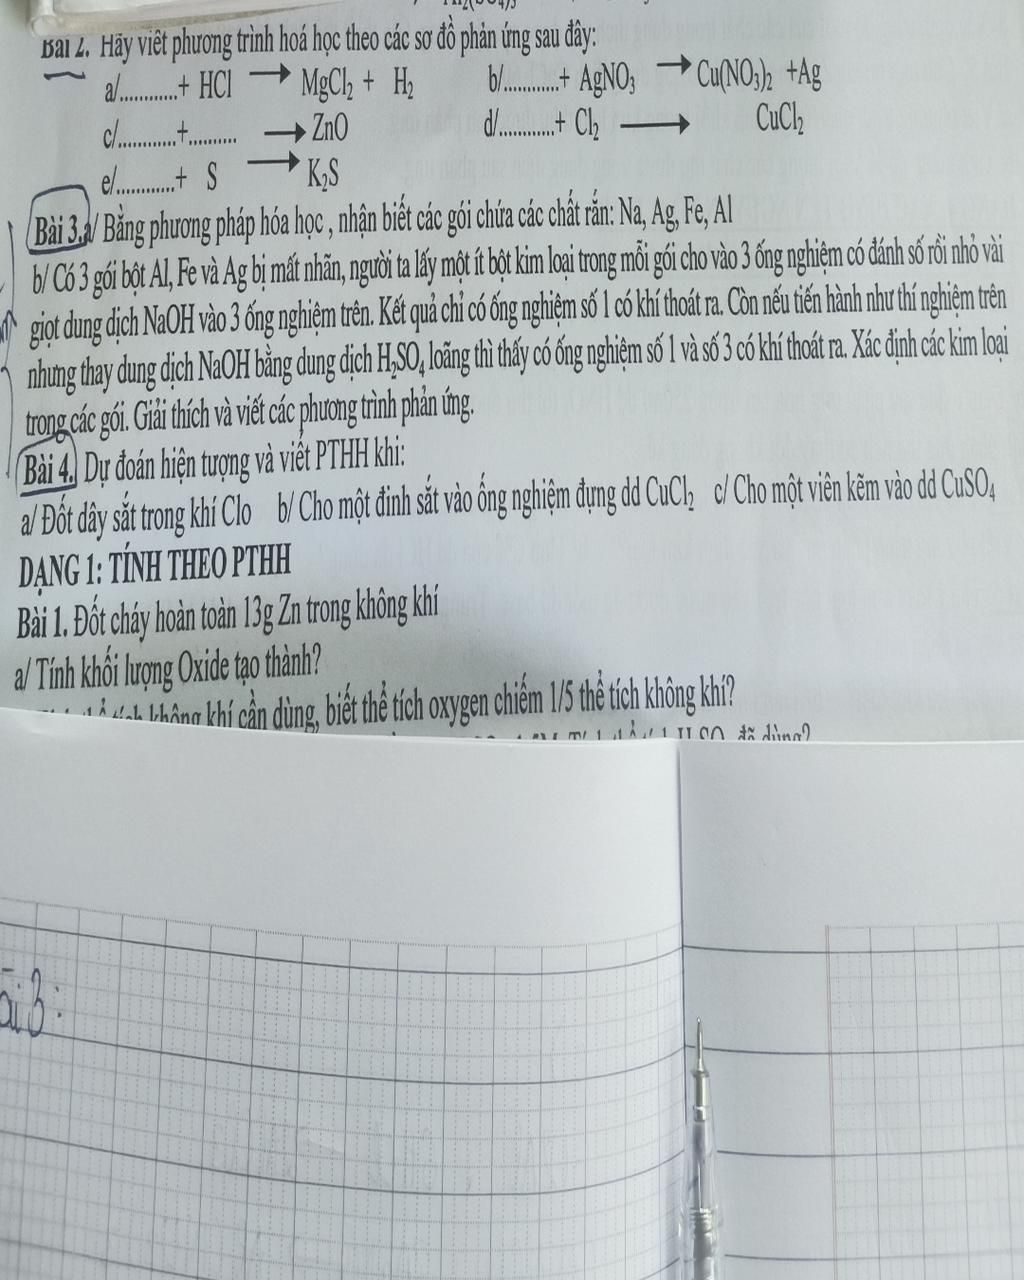 Bài 2. Hãy viết phương trình hoá học theo các sơ đồ phản ứng sau đây:
a/............+ HCl → MgCl₂ + H₂ b/............+ AgNO₃ → Cu(NO₃)₂ +Ag
c/............+.......... → ZnO d/............+ Cl₂ → CuCl₂
e/............+ S → K₂S
Bài 3.a/ Bằng phương pháp hóa học , nhận biết các gói chứa các chất rắn: Na, Ag, Fe, Al
b/ Có 3 gói bột Al, Fe và Ag bị mất nhãn, người ta lấy một ít bột kim loại trong mỗi gói cho vào 3 ống nghiệm có đánh số rồi nhỏ vài
giọt dung dịch NaOH vào 3 ống nghiệm trên. Kết quả chỉ có ống nghiệm số 1 có khí thoát ra. Còn nếu tiến hành như thí nghiệm trên
nhưng thay dung dịch NaOH bằng dung dịch H₂SO₄ loãng thì thấy có ống nghiệm số 1 và số 3 có khí thoát ra. Xác định các kim loại
trong các gói. Giải thích và viết các phương trình phản ứng.
Bài 4. Dự đoán hiện tượng và viết PTHH khi:
a/ Đốt dây sắt trong khí Clo b/ Cho một đinh sắt vào ống nghiệm đựng dd CuCl₂ c/ Cho một viên kẽm vào dd CuSO₄
DẠNG 1: TÍNH THEO PTHH
Bài 1. Đốt cháy hoàn toàn 13g Zn trong không khí
a/ Tính khối lượng Oxide tạo thành?
không khí cần dùng, biết thể tích oxygen chiếm 1/5 thể tích không khí?
đã dùng?
ài 3: